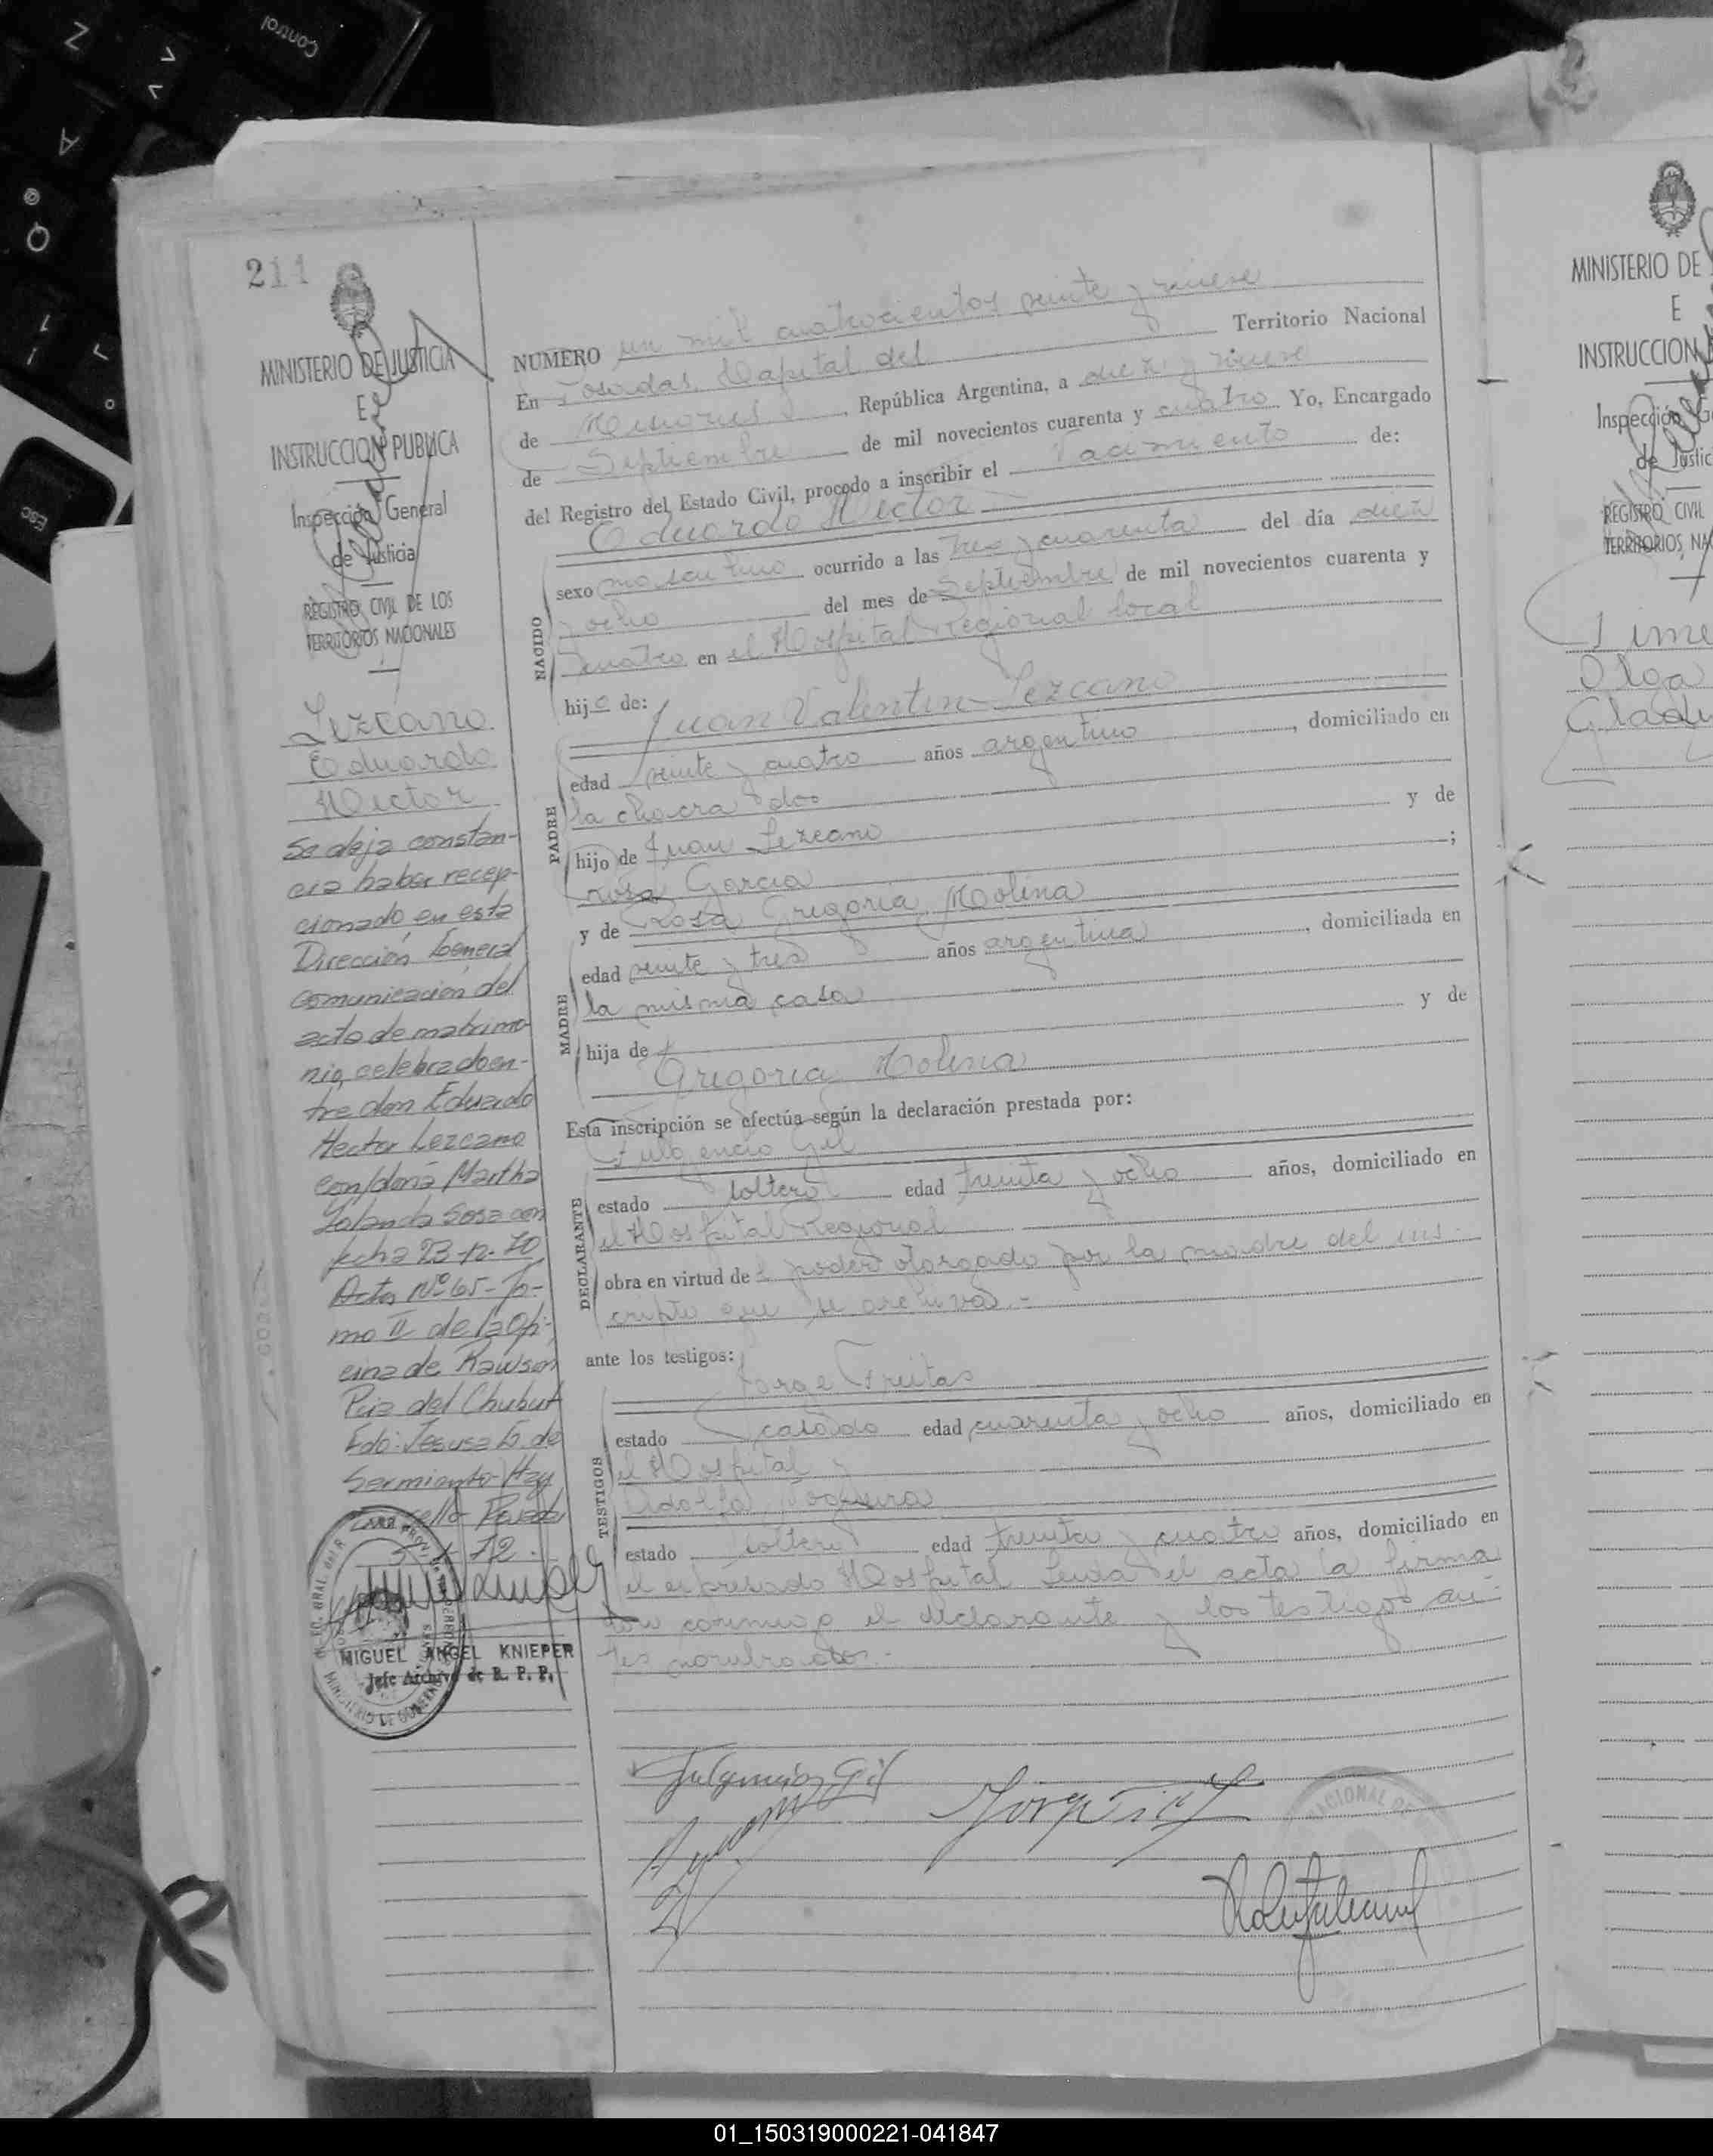 Control
Z
A
Q
Esc
211
MINISTERIO DE JUSTICIA
E
INSTRUCCION PUBLICA
Inspección General
de Justicia
REGISTRO CIVIL DE LOS
TERRITORIOS NACIONALES
Lezcano
Eduardo
Hector
Se deja constan-
cia haber recep-
cionado en esta
Dirección General
comunicación del
acto de matrimo-
nio celebrado en-
tre don Eduardo
Hector Lezcano
con doña Martha
Yolanda Sosa con
fecha 23-12-70
Acta Nº 65- To-
mo II de la Ofi-
cina de Rawson
Pcia del Chubut
Fdo: Jesusa G. de
Sarmiento Hay
sello Posadas
MIGUEL ANGEL KNIEPER
Jefe Archivo de R. P. P.
NUMERO un mil cuatrocientos veinte y nueve
En Posadas, Capital del Territorio Nacional
de Misiones, República Argentina, a diez y nueve
de Septiembre de mil novecientos cuarenta y cuatro Yo, Encargado
del Registro del Estado Civil, procedo a inscribir el Nacimiento de:
Eduardo Hector
NACIDO
sexo masculino ocurrido a las tres y cuarenta del día diez
y ocho del mes de Septiembre de mil novecientos cuarenta y
cuatro en el Hospital Regional local
hijo de: Juan Valentin Lezcano
PADRE
edad veinte y cuatro años argentino, domiciliado en
la chacra dos
hijo de Juan Lezcano y de
rosa Garcia;
y de Rosa Gregoria Molina
MADRE
edad veinte y tres años argentina, domiciliada en
la misma casa
hija de y de
Gregoria Molina
Esta inscripción se efectúa según la declaración prestada por:
Fulgencio Gil
DECLARANTE
estado soltero edad treinta y ocho años, domiciliado en
el Hospital Regional
obra en virtud de poder otorgado por la madre del ins-
cripto que se archiva.-
ante los testigos:
Jorge Freitas
TESTIGOS
estado casado edad cuarenta y ocho años, domiciliado en
el Hospital y
Adolfo Nogueira
estado soltero edad treinta y cuatro años, domiciliado en
el expresado Hospital Leida el acta la firma
ron conmigo el declarante y los testigos an-
tes nombrados.-
Fulgencio Gil
MINISTERIO DE
E
INSTRUCCION
Inspección
de Justic
REGISTRO CIVIL
TERRITORIOS NA
Olga
01_150319000221-041847